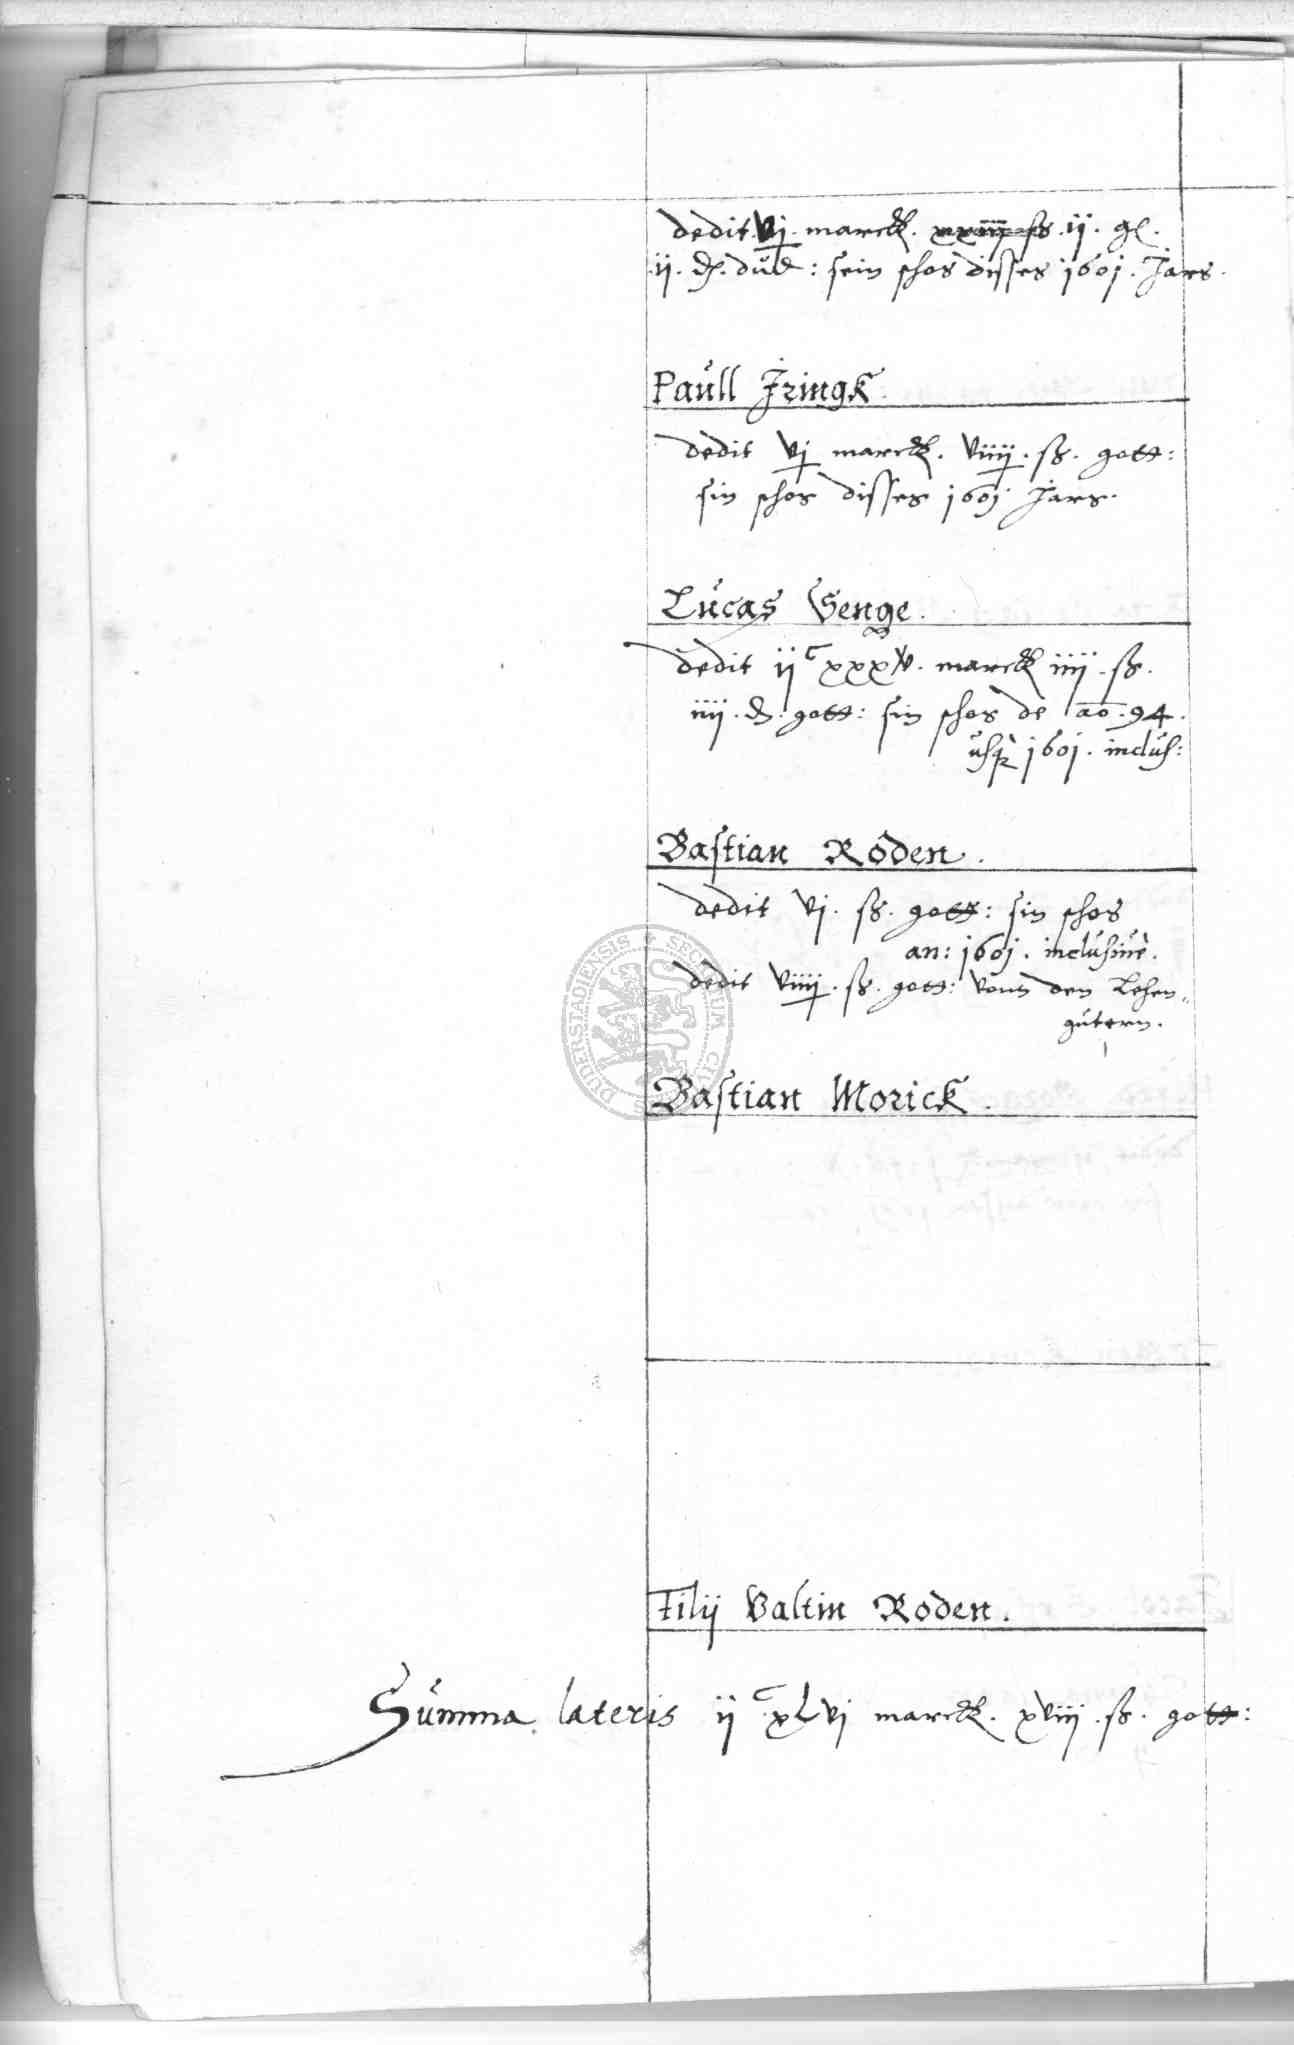 dedit vj marck. ij. gl.
ij. d. dud: sein schos disses 1601. Jars.
Paull Jringk.
dedit vj marck. viiij. ß. gott:
sin schos disses 1601 Jars.
Lucas Senge.
dedit ij c xxxv. marck iiij. ß.
iiij. d. gott: sin schos de ao. 94.
usq 1601. inclus:
Bastian Roden.
dedit vj. ß. gott: sin schos
an: 1601. inclusiue.
dedit viiij. ß. gott: vonn den Lehen„
gütern.
DUDERSTADIENSIS SECRETUM
Bastian Morick.
Filij Valtin Roden.
Summa lateris ij c xLvj marck. xviij. ß. gott: